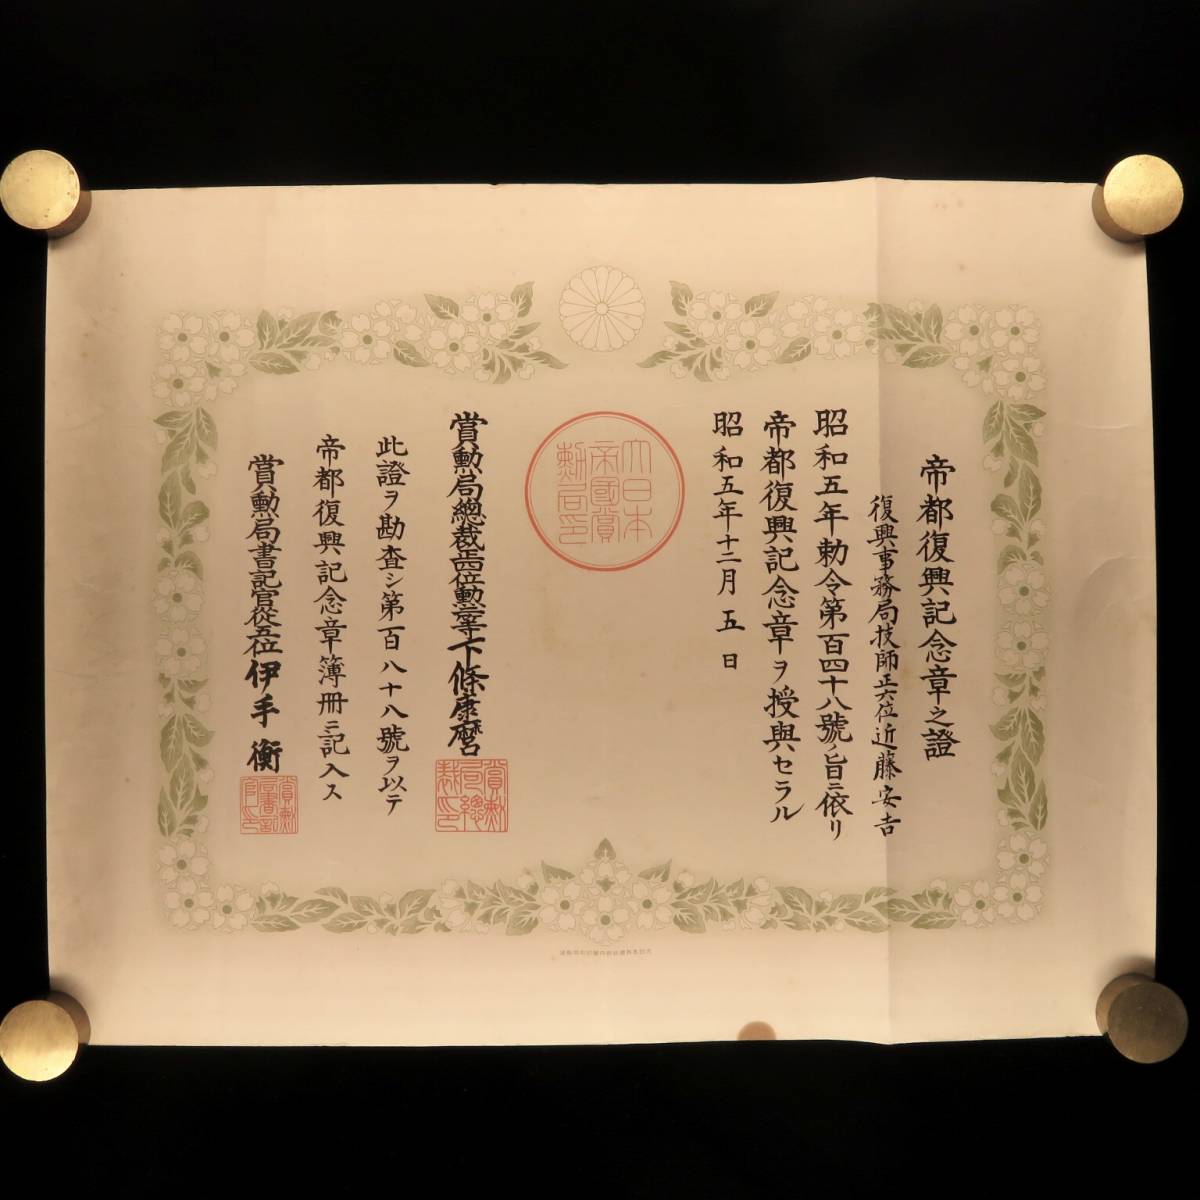 帝都復興記念章之證
復興事務局技師正六位近藤安吉
昭和五年勅令第百四十八號ノ旨ニ依リ
帝都復興記念章ヲ授與セラル
昭和五年十二月五日
大日本
帝國賞
勲局印
賞勲局總裁正四位勲二等下條康麿
賞勲
局總
裁印
此證ヲ勘査シ第一百八十八號ヲ以テ
帝都復興記念章簿冊ニ記入ス
賞勲局書記官從五位伊手衡
賞勲
局書記
官印